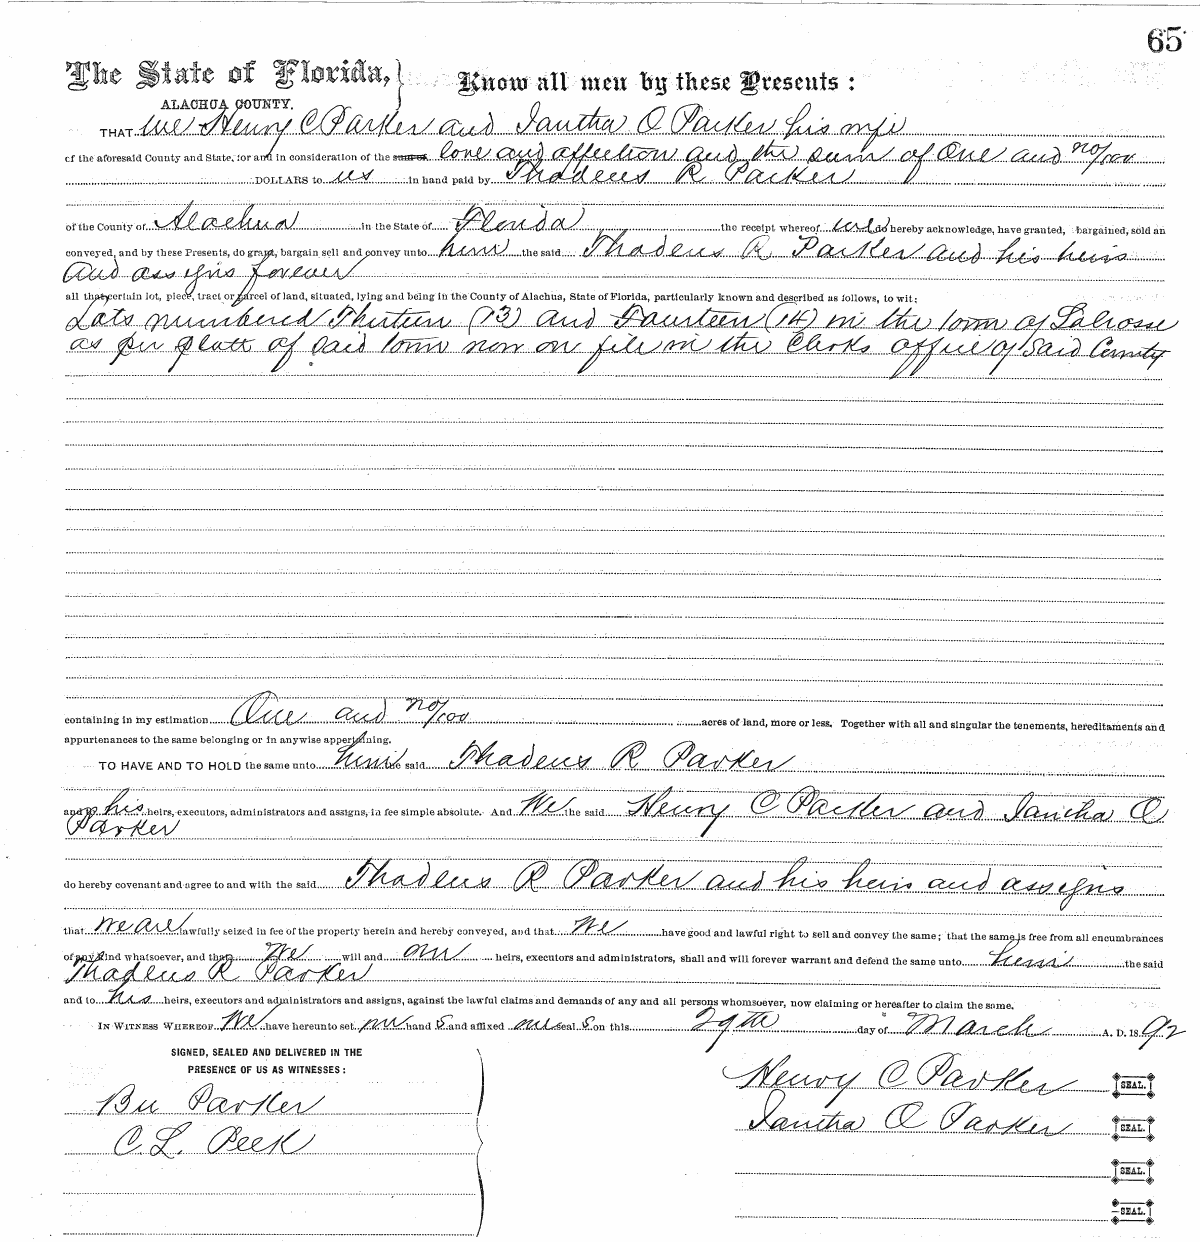 65
The State of Florida,} Know all men by these Presents:
ALACHUA COUNTY.
THAT we Henry C Parker and Iantha O Parker his wife
of the aforesaid County and State, for and in consideration of the sum of love and affection and the sum of One and no/100
DOLLARS to us in hand paid by Thadeus R Parker
of the County of Alachua in the State of Florida the receipt whereof we do hereby acknowledge, have granted, bargained, sold an
conveyed, and by these Presents, do grant, bargain sell and convey unto him the said Thadeus R Parker and his heirs
and assigns forever
all that certain lot, piece, tract or parcel of land, situated, lying and being in the County of Alachua, State of Florida, particularly known and described as follows, to wit:
Lots numbered Thirteen (13) and Fourteen (14) in the town of LaCrosse
as per platt of said town now on file in the Clerks office of Said County
containing in my estimation One and no/100 acres of land, more or less. Together with all and singular the tenements, hereditaments and
appurtenances to the same belonging or in anywise appertaining.
TO HAVE AND TO HOLD the same unto him the said Thadeus R Parker
and to his heirs, executors, administrators and assigns, in fee simple absolute. And We the said Henry C Parker and Iantha O
Parker
do hereby covenant and agree to and with the said Thadeus R Parker and his heirs and assigns
that we are lawfully seized in fee of the property herein and hereby conveyed, and that We have good and lawful right to sell and convey the same; that the same is free from all encumbrances
of any kind whatsoever, and that We will and our heirs, executors and administrators, shall and will forever warrant and defend the same unto him the said
Thadeus R Parker
and to his heirs, executors and administrators and assigns, against the lawful claims and demands of any and all persons whomsoever, now claiming or hereafter to claim the same.
IN WITNESS WHEREOF We have hereunto set our hand s and affixed our seal s on this 29th day of March A. D. 1892
SIGNED, SEALED AND DELIVERED IN THE
PRESENCE OF US AS WITNESSES:
Henry C Parker SEAL.
Parker
Iantha O Parker SEAL.
C. L. Peek
SEAL.
SEAL.